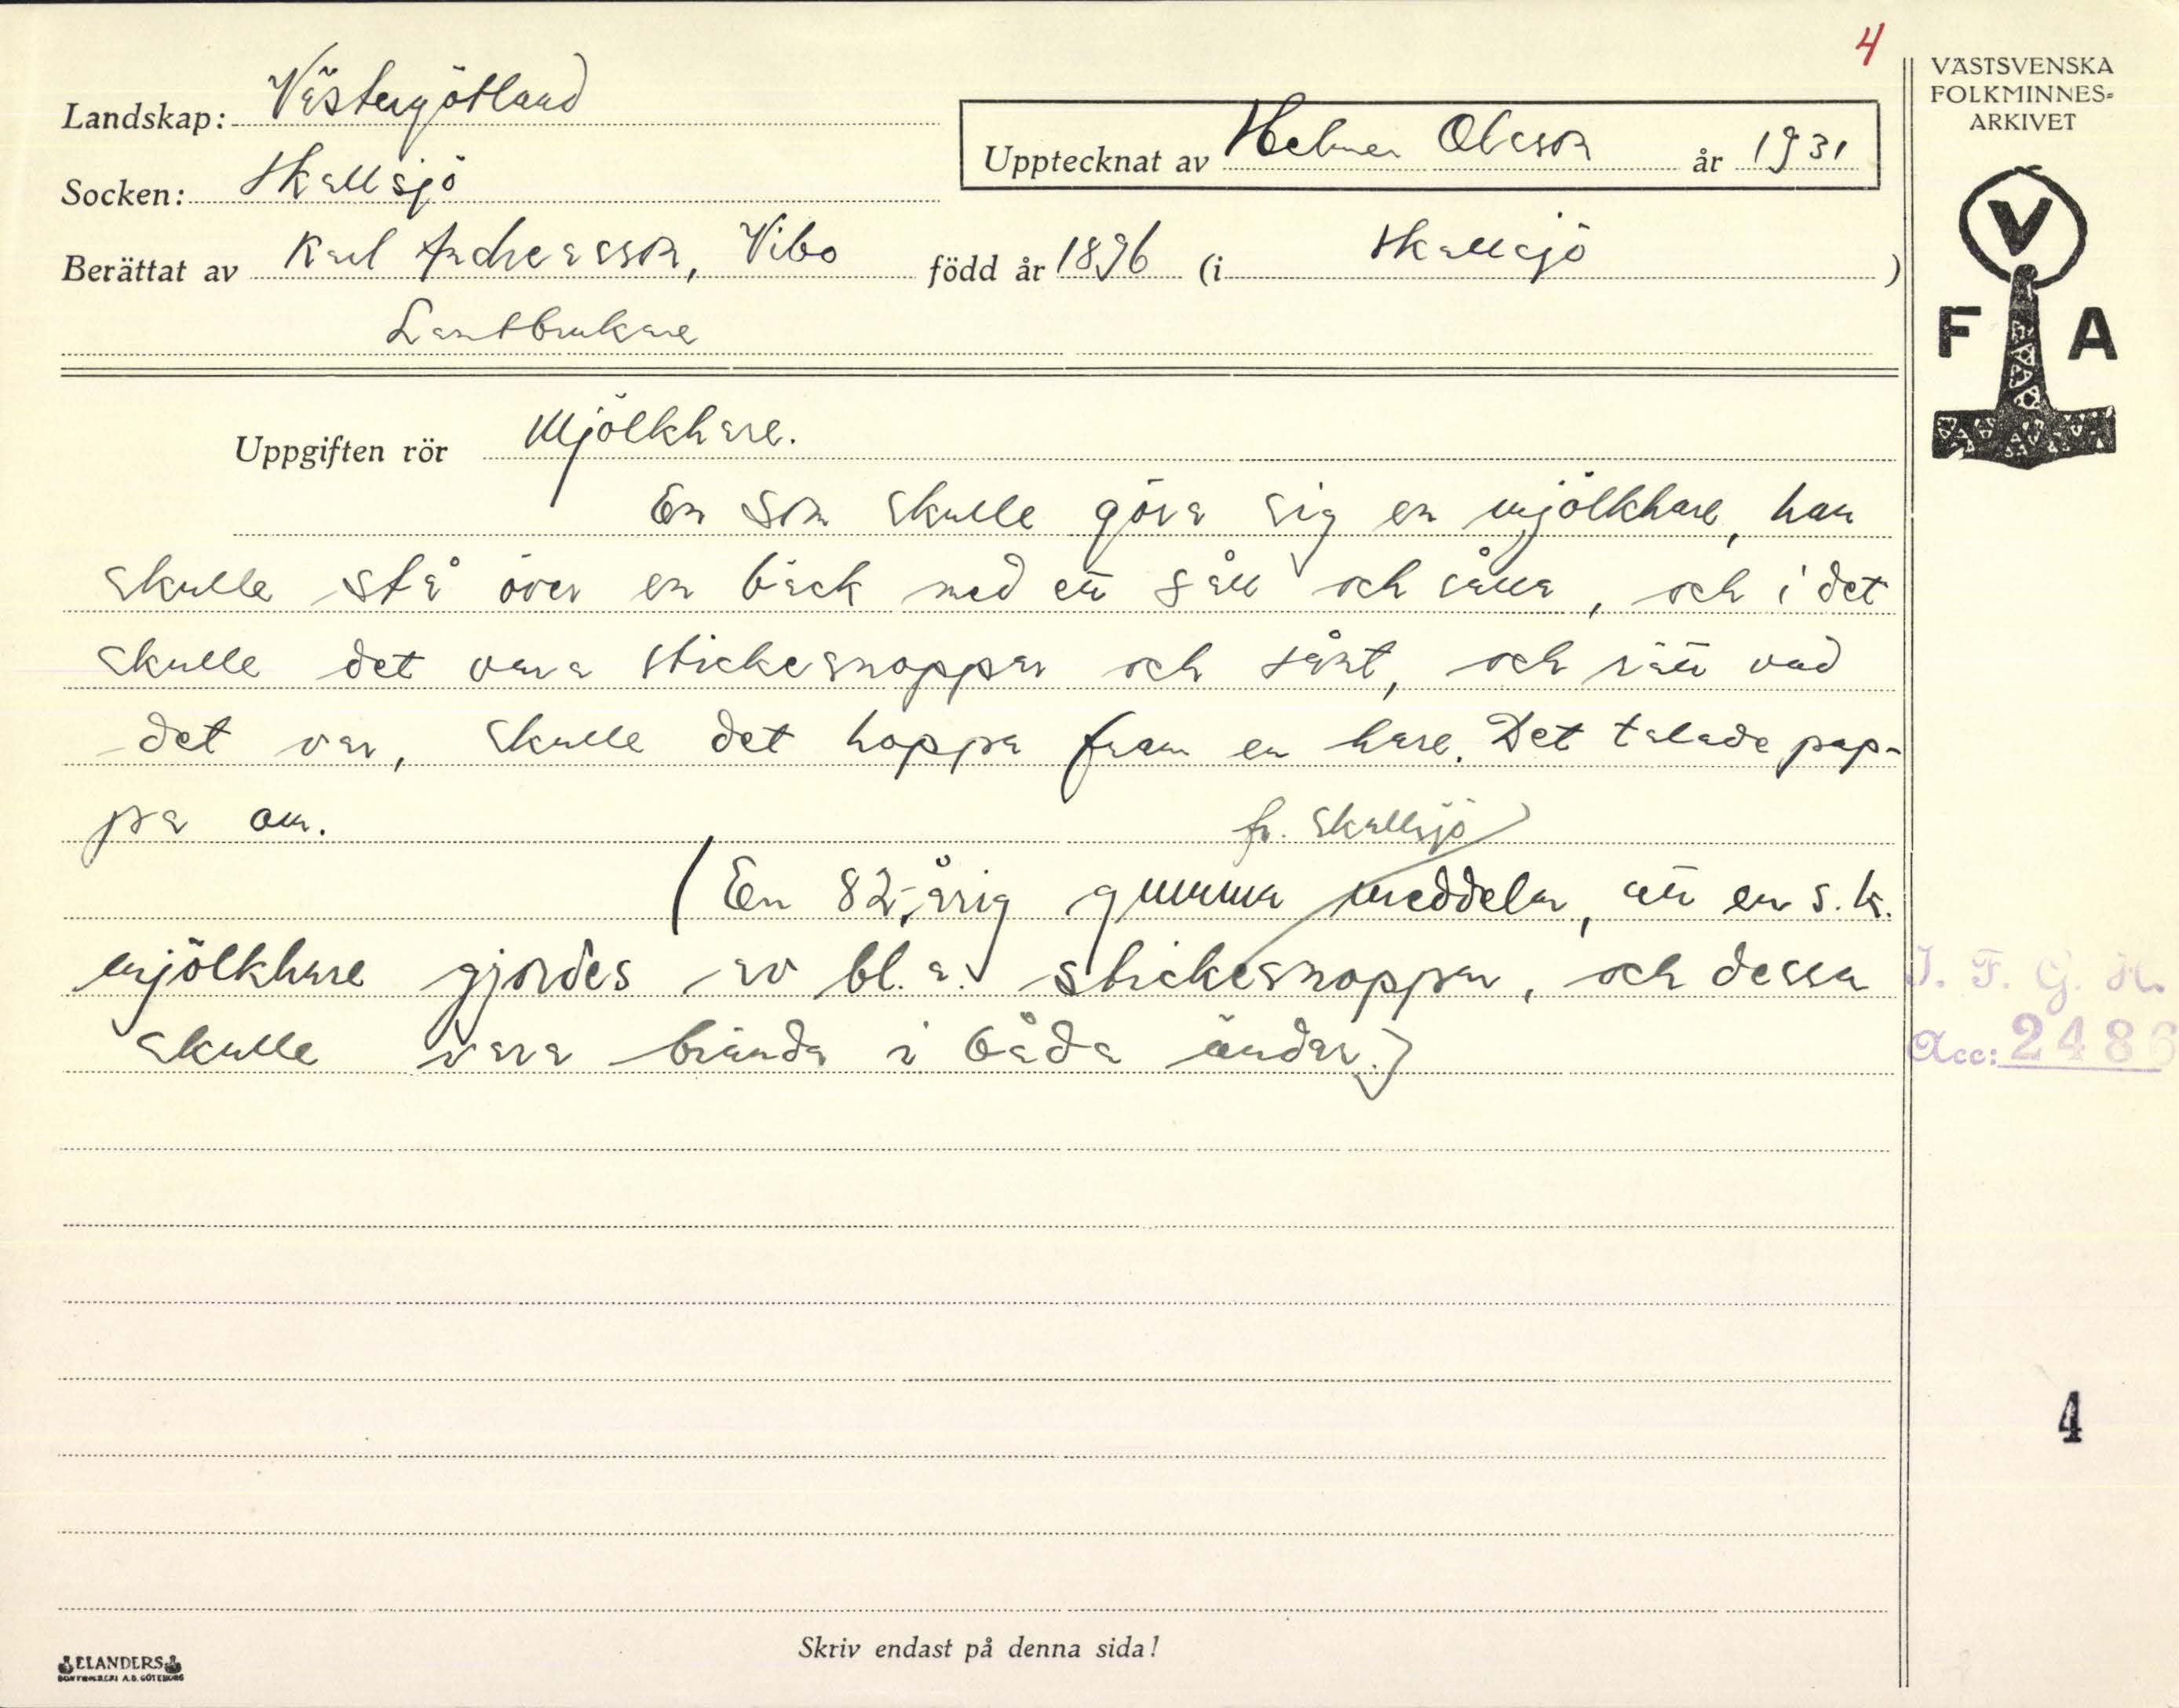 4
VÄSTSVENSKA
FOLKMINNES-
ARKIVET
Landskap: Västergötland
Upptecknat av Helmer Olsson år 1931
Socken: Skallsjö
Berättat av Karl Andreasson, Vibo född år 1896 (i Skallsjö)
Lantbrukare
V
F A
Uppgiften rör Mjölkhare.
En som skulle göra sig en mjölkhare, han
skulle stå över en bäck med ett såll och sålla, och i det
skulle det vara stickesnoppar och sånt, och rätt vad
det var, skulle det hoppa fram en hare. Det talade pap-
pa om.
fr. Skallsjö
(En 82-årig gumma meddelar, att en s.k.
mjölkhare gjordes av bl.a. stickesnoppar, och dessa
skulle vara brända i båda ändar.)
I. F. G. H.
Acc: 2486
4
Skriv endast på denna sida!
ELANDERS
BOKTRYCKERI A.B. GÖTEBORG